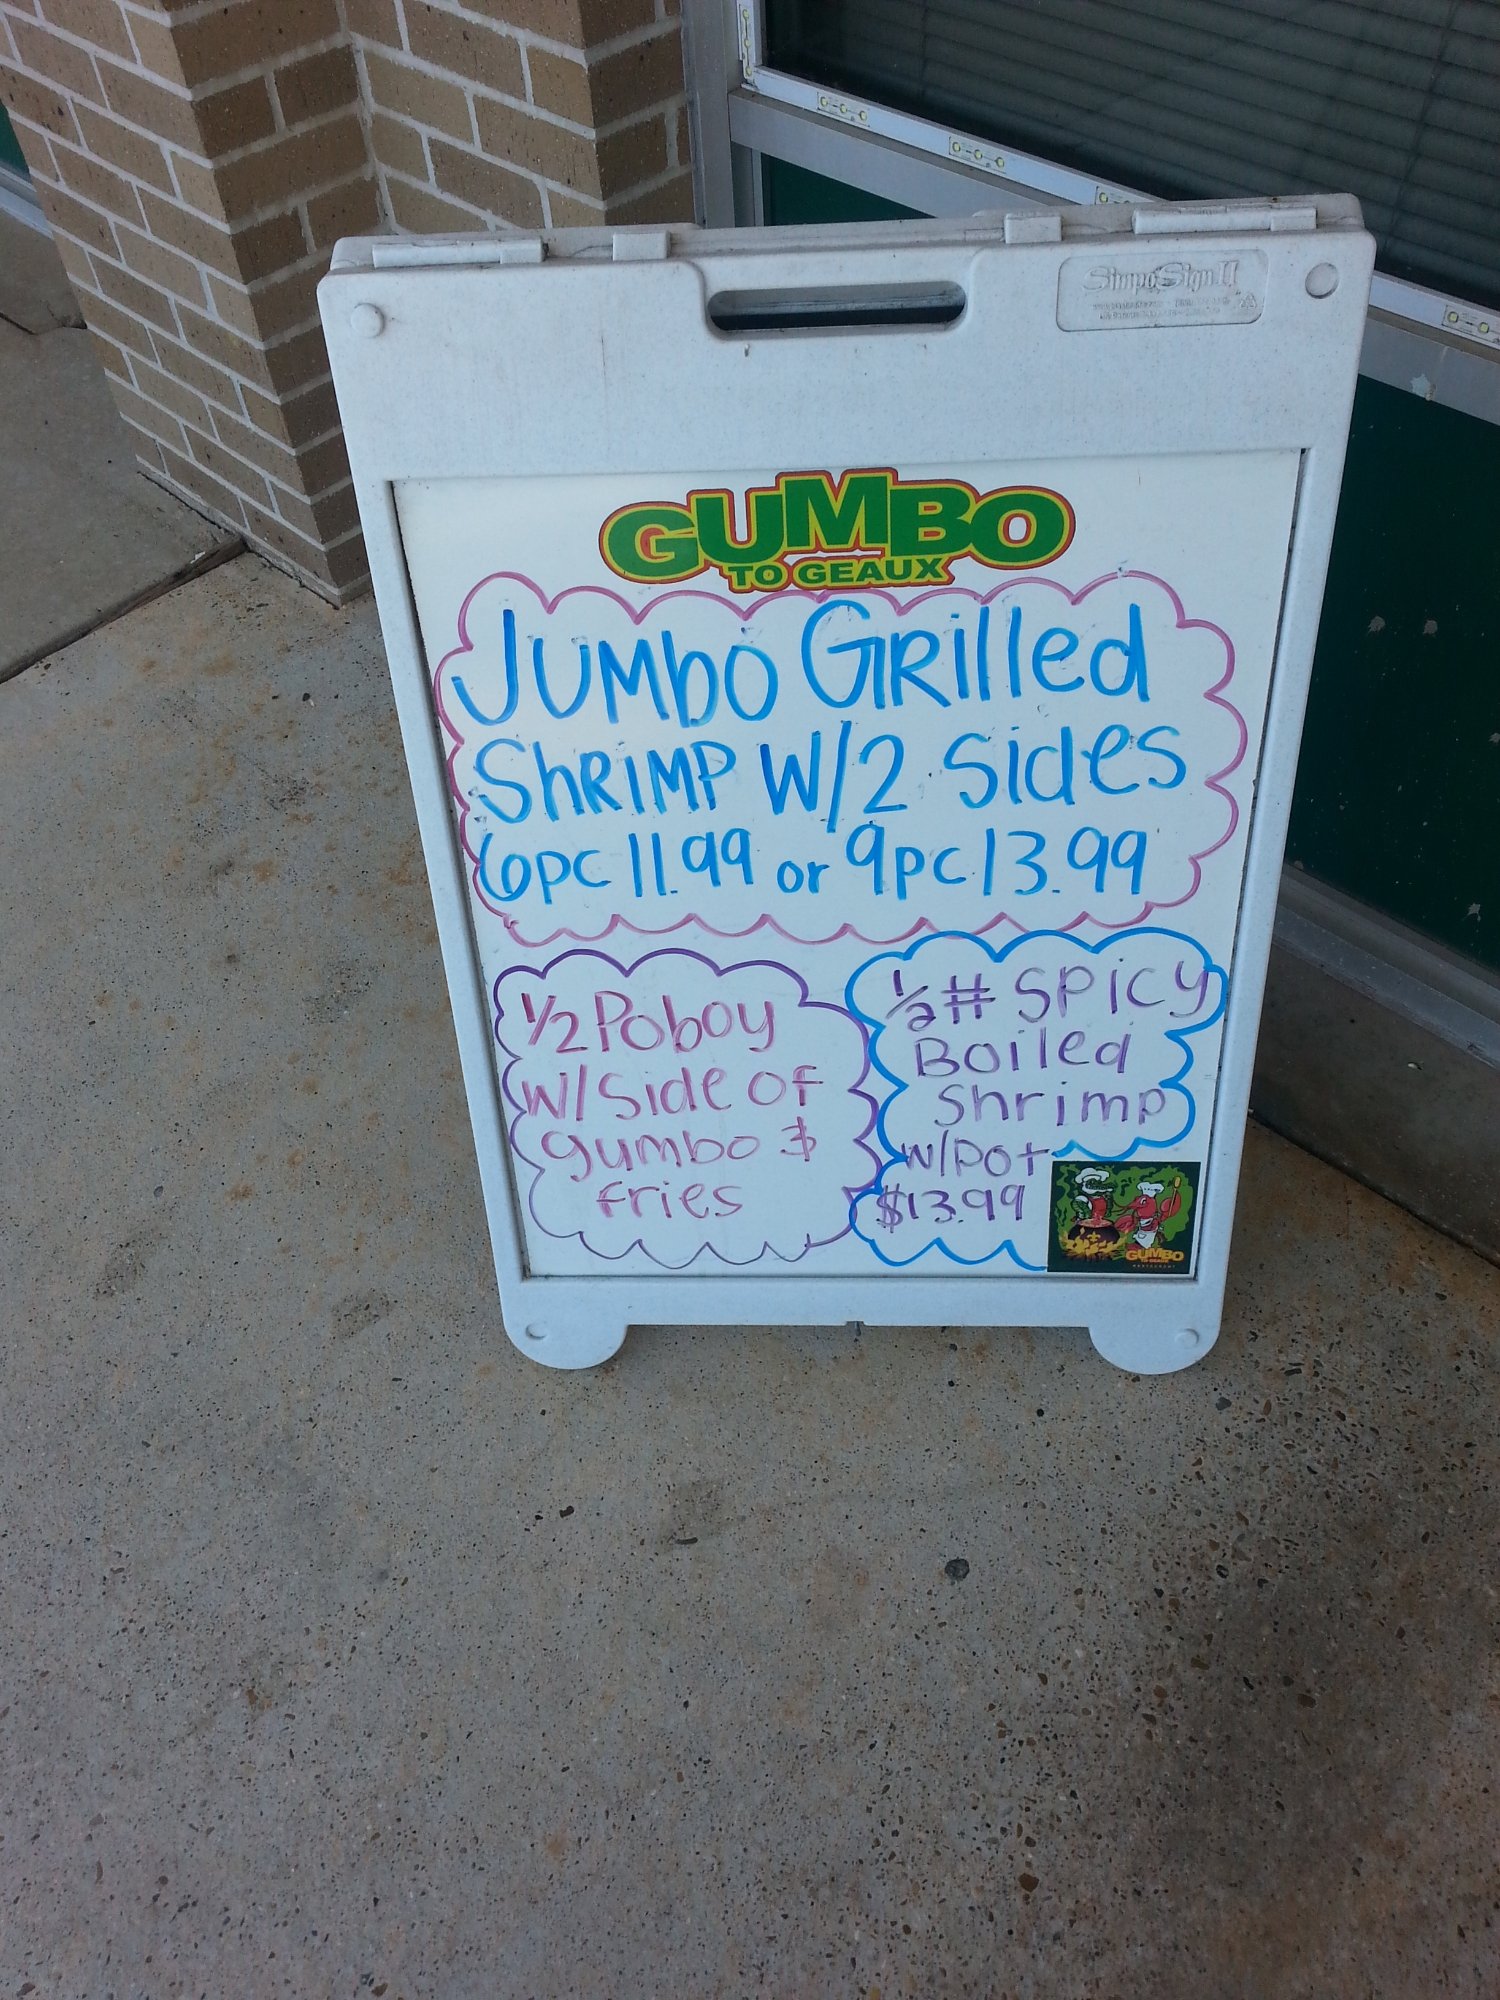 SimpoSign II
GUMBO
TO GEAUX
JUMbO GRilled
ShRIMP W/2 Sides
6pc 11.99 or 9pc 13.99
1/2 Poboy
W/Side of
gumbo &
fries
1/2# Spicy
Boiled
Shrimp
W/pot
$13.99
GUMBO
TO GEAUX
RESTAURANT